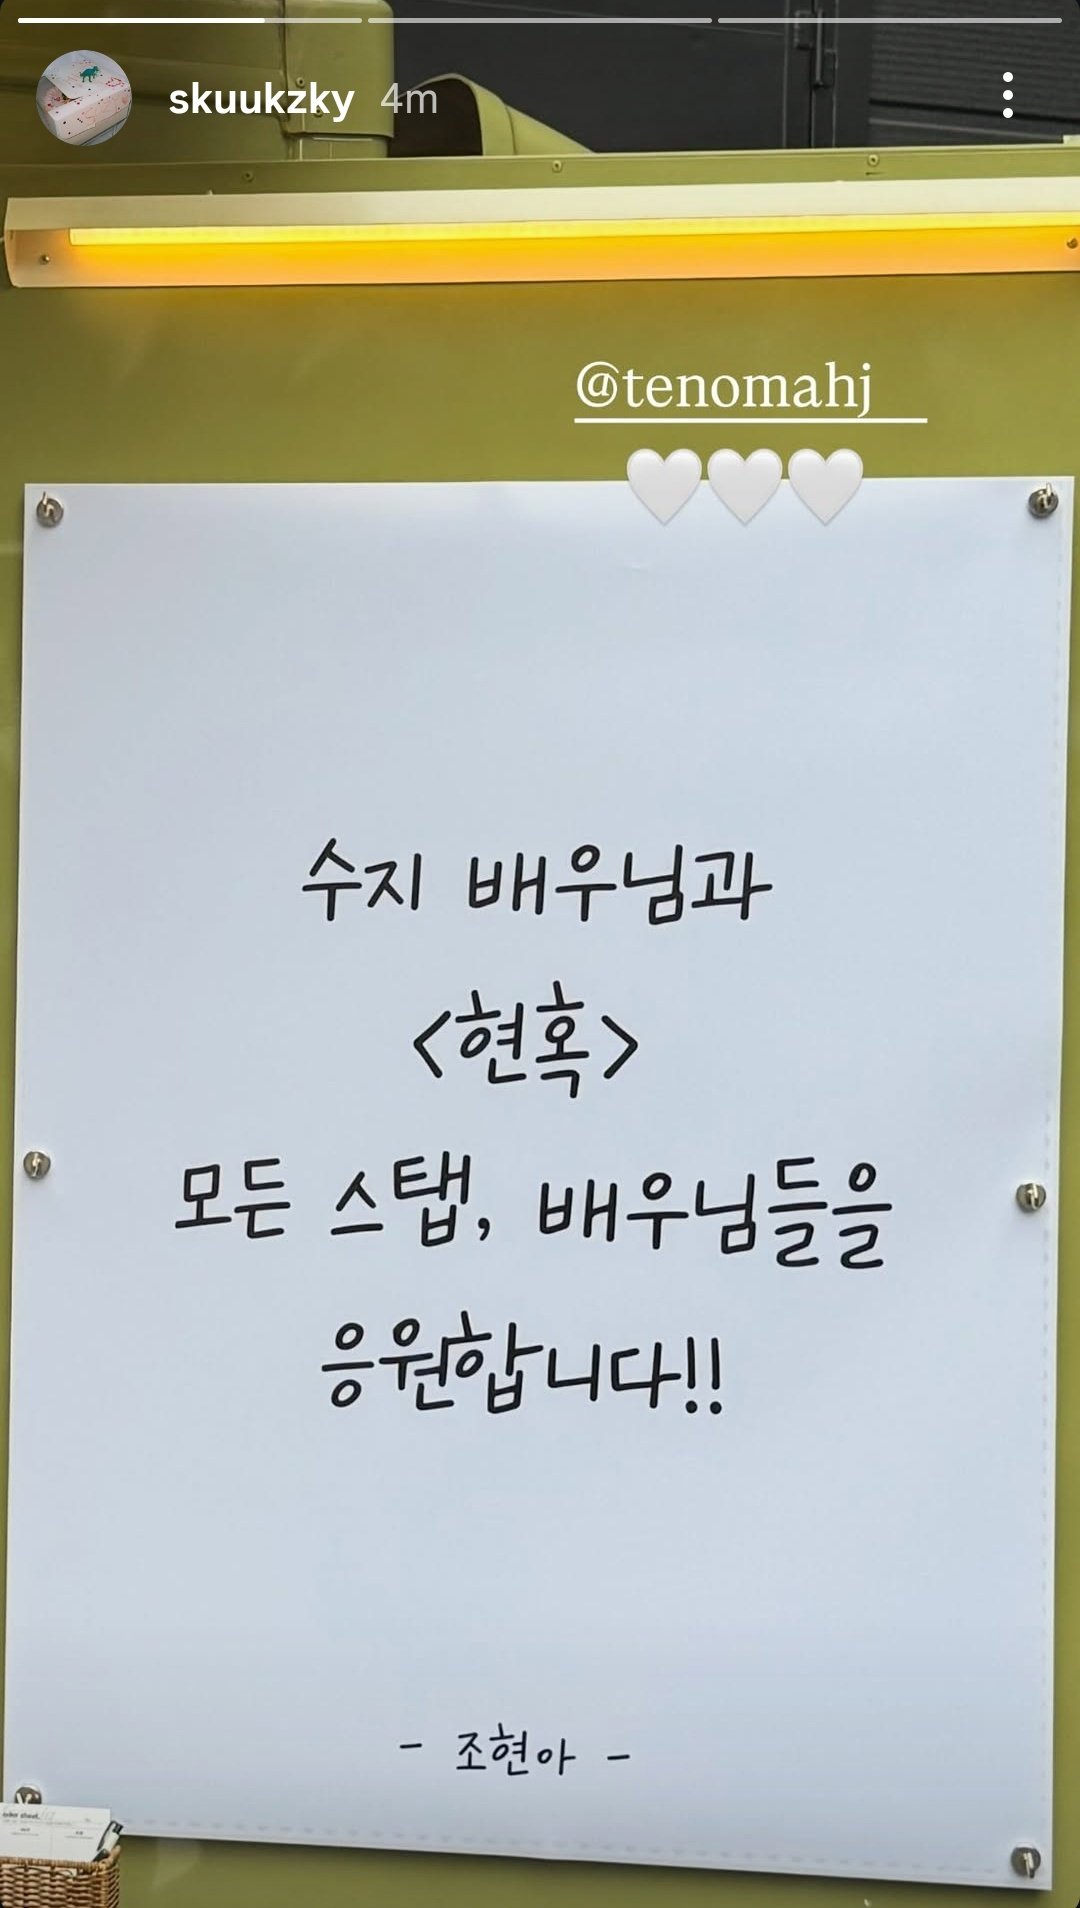 skuukzky 4m
@tenomahj__
🤍🤍🤍
수지 배우님과
<현혹>
모든 스탭, 배우님들을
응원합니다!!
- 조현아 -